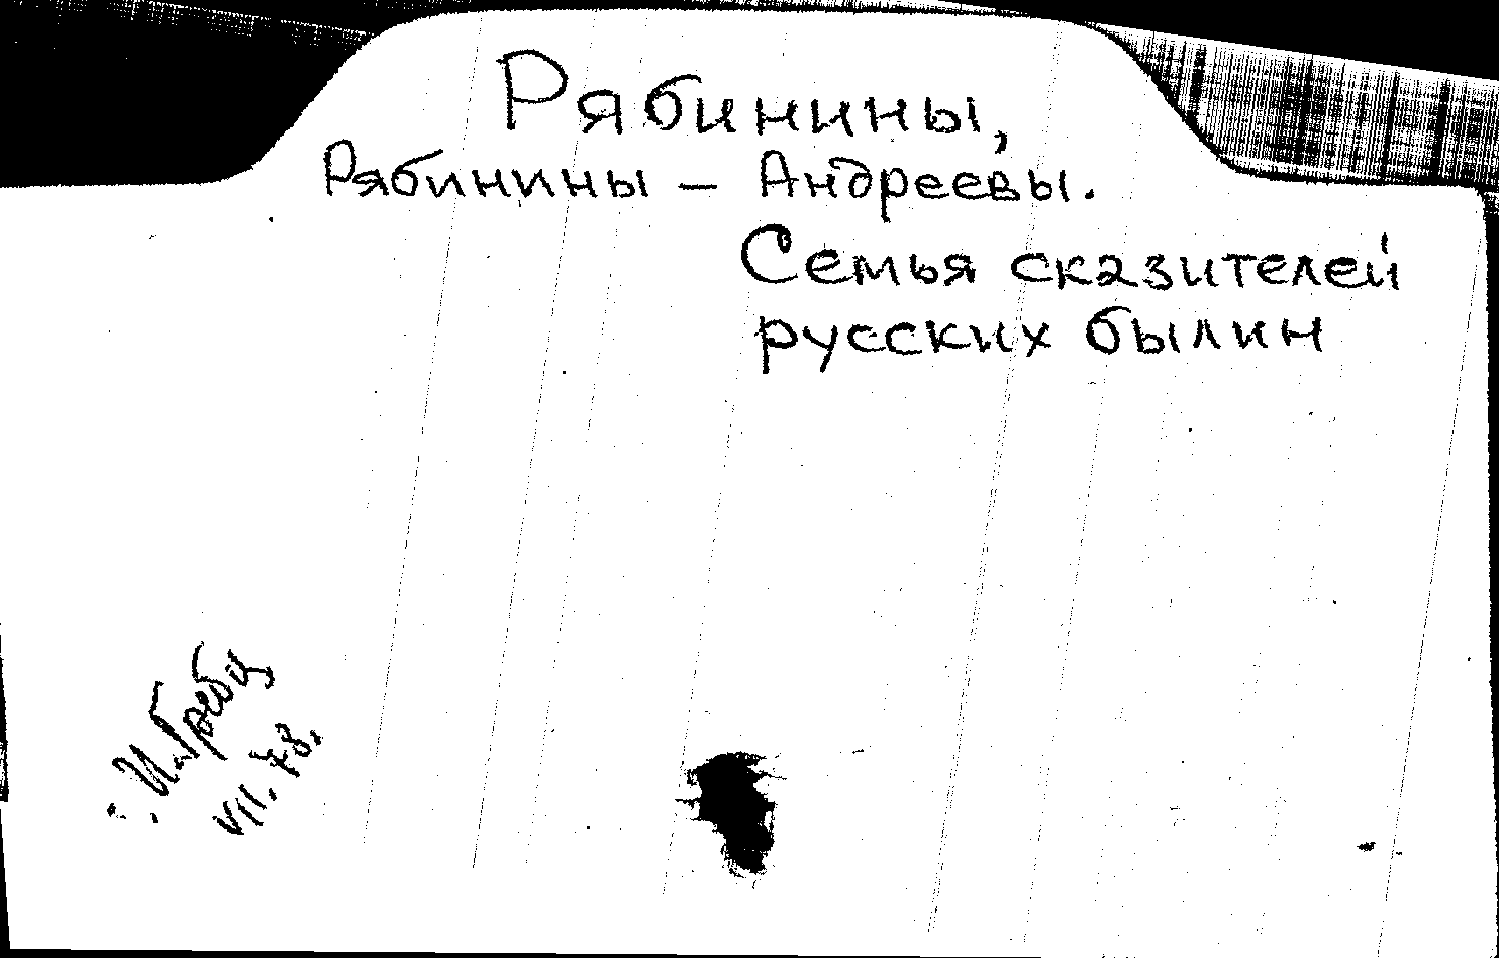 Рябинины,
Рябинины – Андреевы.
Семья сказителей
русских былин
VII. 78.